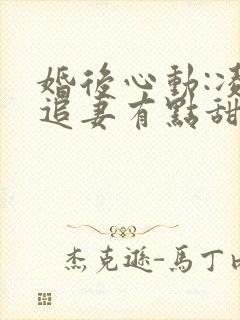 婚後心動:凌
追妻有點甜
杰克遜-馬丁內